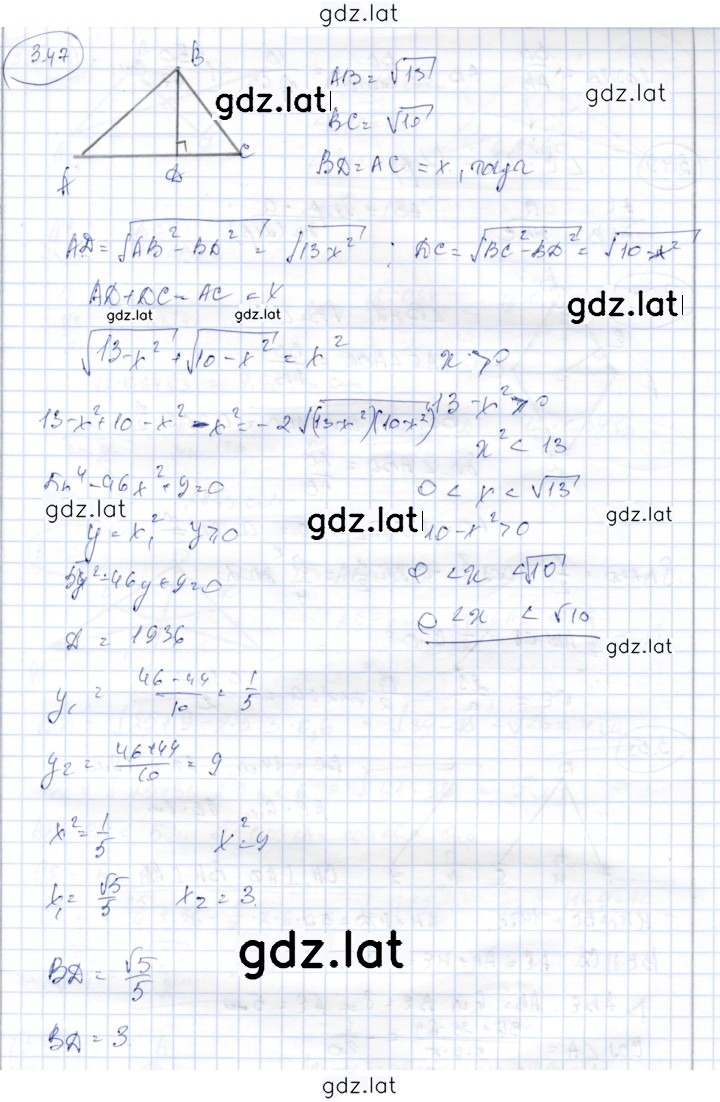 gdz.lat
347
B
AB = √13
gdz.lat
gdz.lat
BC = √10
A D C
BD = AC = x, тогда
AD = √AB² - BD² = √13-x² ; DC = √BC² - BD² = √10-x²
AD + DC = AC = x
gdz.lat gdz.lat
gdz.lat
√13-x² + √10-x² = x²
x > 0
13-x²+10-x²-x² = -2√(13-x²)(10-x²)
13-x² > 0
x² < 13
5x⁴ - 46x² + 9 = 0
0 < x < √13
gdz.lat
gdz.lat
gdz.lat
y = x², y ≥ 0
10-x² > 0
5y² - 46y + 9 = 0
0 < x < √10
D = 1936
0 < x < √10
gdz.lat
y₁ = 46-44/10 = 1/5
y₂ = 46+44/10 = 9
x² = 1/5
x² = 9
x₁ = √5/5
x₂ = 3.
gdz.lat
BD = √5/5
BD = 3.
gdz.lat